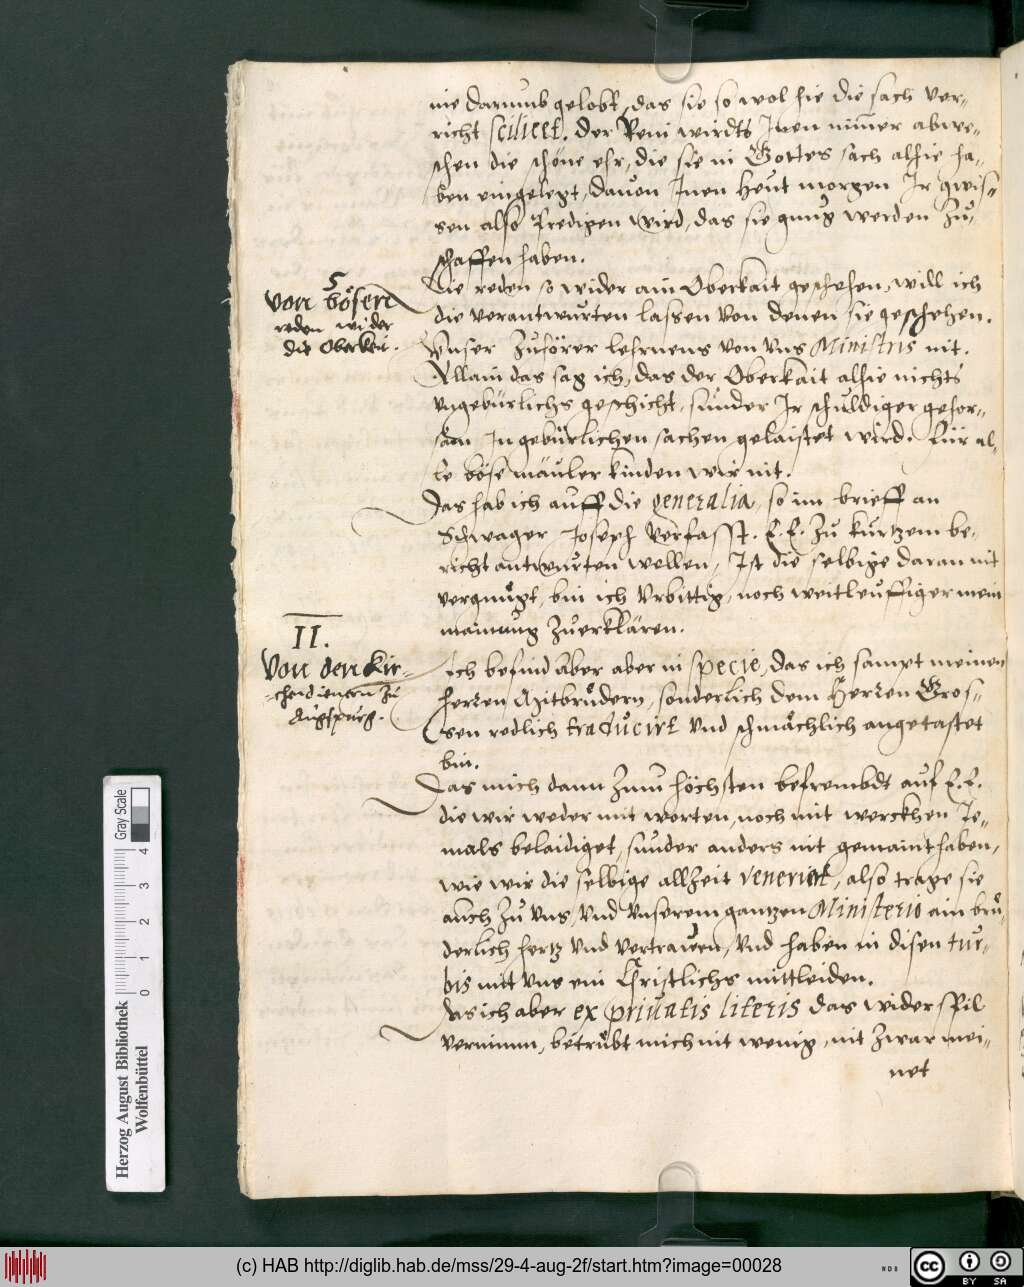 nie darumb gelobt, das sie so wol hie die sach ver-
richt scilicet. Der Reni wirdts Jnen nim̄er abwe-
schen die schöne ehr, die sie in Gottes sach alhie ha-
ben eingelegt, dauon Jnen heut morgen Jr gwis-
sen also Predigen wird, das sie gnug werden zu-
schaffen haben.
5
Von bösen
reden wider
die Oberkeit.
Die reden so wider ain Oberkait geschehen, will ich
die verantwurten lassen von denen sie geschehen.
Vnser Zuhörer lehrnens von vns Ministris nit.
Allain das sag ich, das der Oberkait alhie nichts
vngebürlichs geschicht, sunder Jr schuldiger gehor-
sam In gebürlichen sachen gelaistet wird. Für al-
le böse mäuler kinden wir nit.
Das hab ich auff die generalia, so im brieff an
Schwager Joseph verfasst. E. E. zu kurtzem be-
richt antwurten wellen, Ist die selbige daran nit
vergnügt, bin ich Vrbittig, noch weitleuffiger mein
mainung Zuerklären.
II.
Von den Kir-
chendienern zu
Augspurg.
Ich befind aber aber in specie, das ich sampt meinen
herren Mitbrüdern, sonderlich dem Herren Gros-
sen redlich traducirt vnd schmächlich angetastet
bin.
Das mich dann zum höchsten befrembdt auf E. E.
die wir weder mit worten, noch mit werckhen Je-
mals belaidiget, sunder anders nit gemaint haben,
wie wir die selbige allzeit veneriert, also trage sie
auch zu vns, vnd vnserem gantzen Ministerio ain brü-
derlich hertz vnd vertrawen, vnd haben in disen tur-
bis mit vns ein Christlichs mittleiden.
Das ich aber ex priuatis literis das widerspil
vernimm, betrübt mich nit wenig, nit zwar mei-
net
Gray Scale
4
3
2
1
0
Herzog August Bibliothek
Wolfenbüttel
(c) HAB http://diglib.hab.de/mss/29-4-aug-2f/start.htm?image=00028
WDB
cc
BY SA